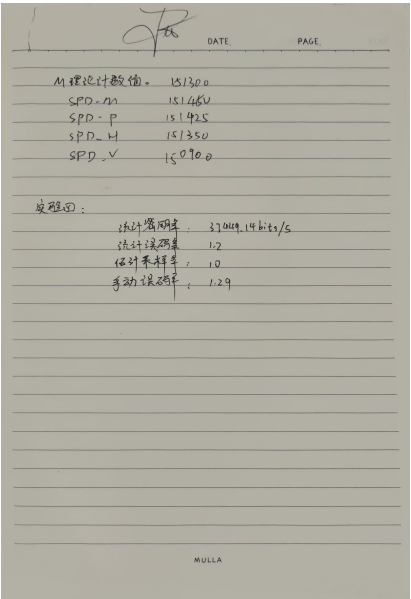 DATE. PAGE.
M理论计数值。 151300
SPD-M 151450
SPD-P 151425
SPD-H 151350
SPD-V 150900
实验图:
统计密钥率: 37449.14bits/s
统计误码率 1.2
估计采样率: 10
手动误码率: 1.29
MULLA